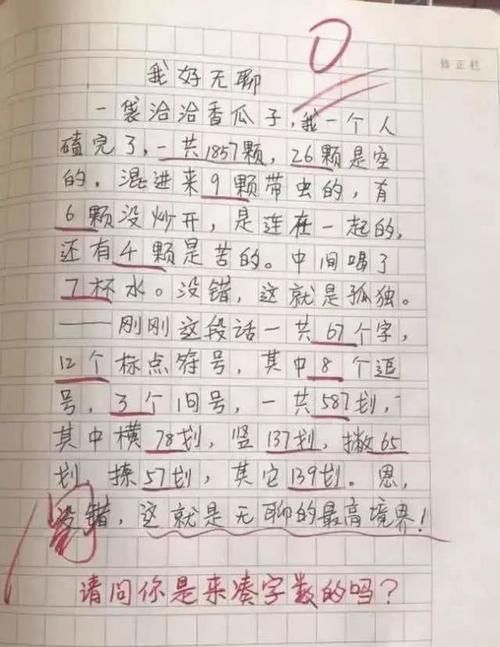 0
修正栏
我好无聊
一袋洽洽香瓜子,我一个人
磕完了,一共1857颗,26颗是空
的,混进来9颗带虫的,有
6颗没炒开,是连在一起的,
还有4颗是苦的。中间喝了
7杯水。没错,这就是孤独。
——刚刚这段话一共67个字,
12个标点符号,其中8个逗
号,3个句号,一共587划,
其中横78划,竖137划,撇65
划,捺57划,其它139划。恩,
没错,这就是无聊的最高境界!
阅
请问你是来凑字数的吗?